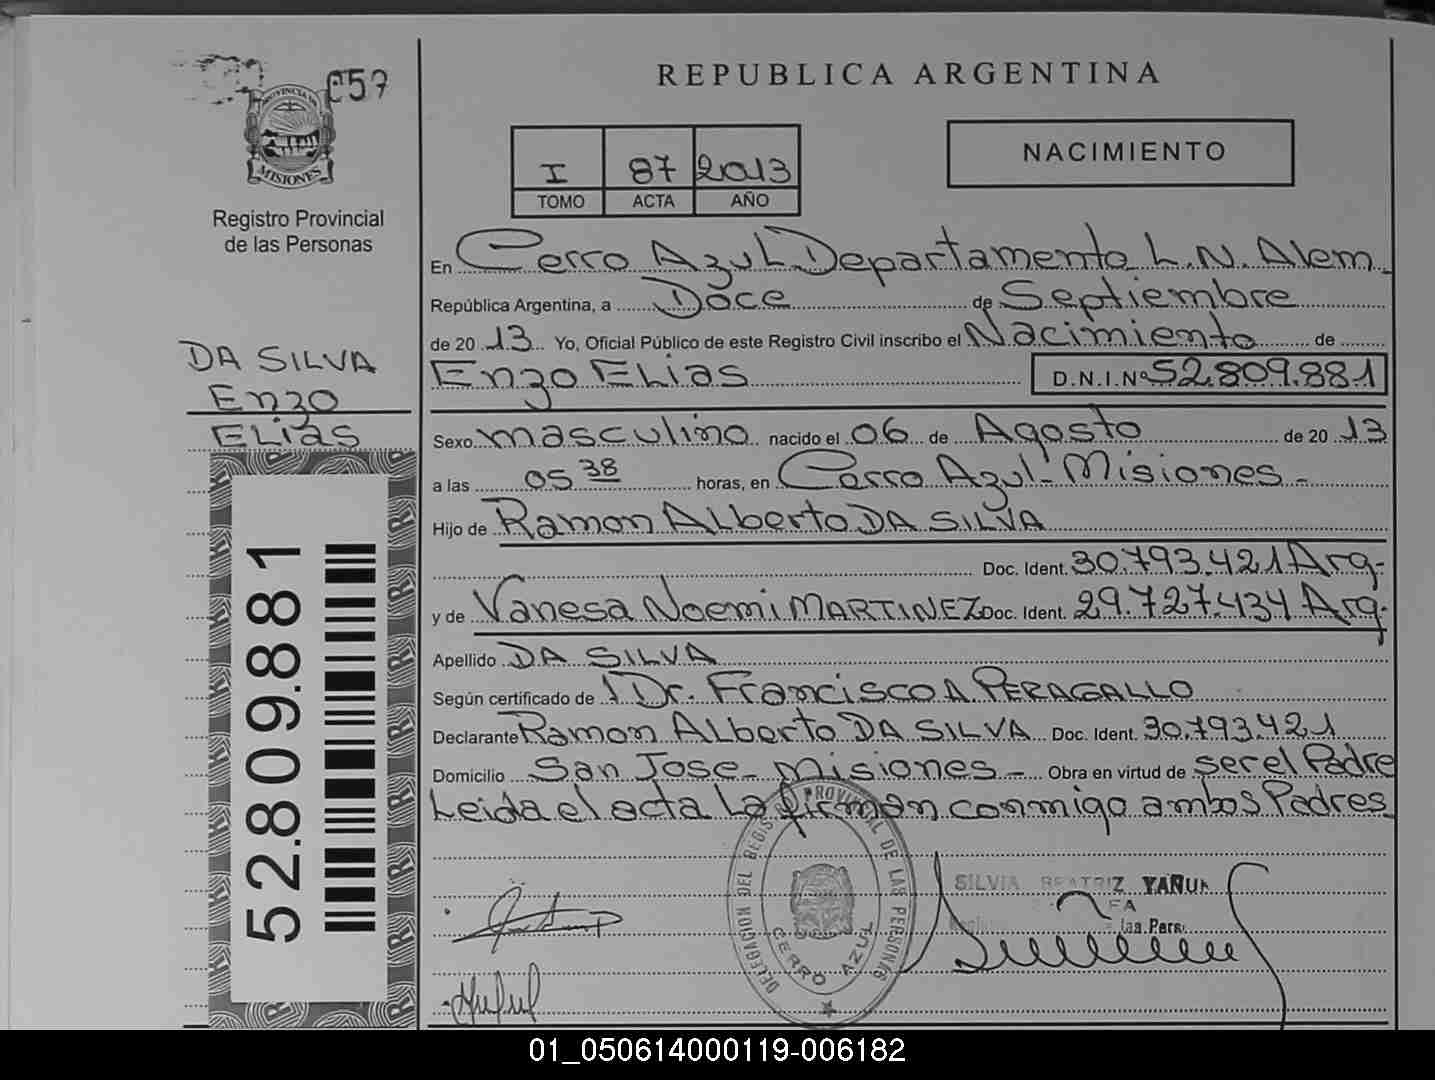 057
PROVINCIA DE
MISIONES
Registro Provincial
de las Personas
REPUBLICA ARGENTINA
I 87 2013
TOMO ACTA AÑO
NACIMIENTO
En Cerro Azul Departamento L.N. Alem
República Argentina, a Doce de Septiembre
de 20 13 Yo, Oficial Público de este Registro Civil inscribo el Nacimiento de
Enzo Elias D.N.I.Nº 52.809.881
DA SILVA
Enzo
Elias
Sexo masculino nacido el 06 de Agosto de 20 13
a las 05 38 horas, en Cerro Azul - Misiones -
Hijo de Ramon Alberto DA SILVA
Doc. Ident. 30.793.421 Arg.
y de Vanesa Noemi MARTINEZ Doc. Ident. 29.727.434 Arg.
Apellido DA SILVA
Según certificado de Dr. Francisco A. PERAGALLO
Declarante Ramon Alberto DA SILVA Doc. Ident. 30.793.421
Domicilio San Jose - Misiones - Obra en virtud de ser el Padre
Leida el acta La firman conmigo ambos Padres
52.809.881
DELEGACION DEL REGISTRO PROVINCIAL DE LAS PERSONAS
CERRO AZUL
SILVIA BEATRIZ
las Pers
01_050614000119-006182